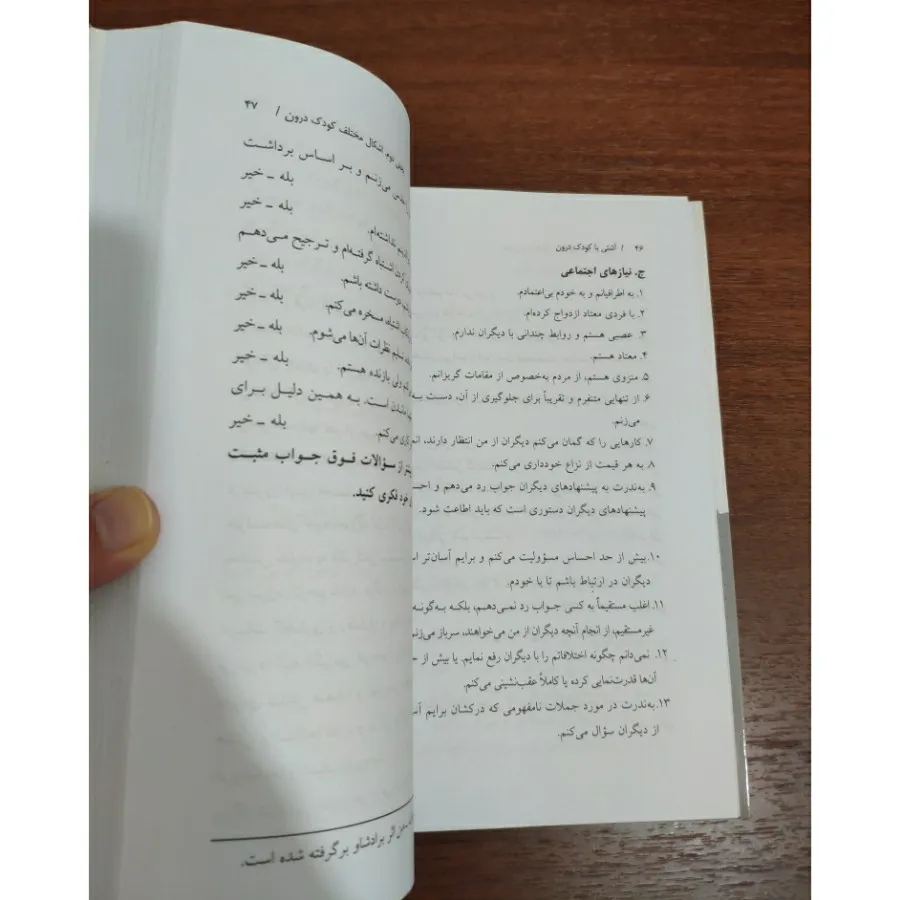 ۴۶ / آشتی با کودک درون
ج. نیازهای اجتماعی
۱. به اطرافیانم و به خودم بی‌اعتمادم.
۲. با فردی معتاد ازدواج کرده‌ام.
۳. عصبی هستم و روابط چندانی با دیگران ندارم.
۴. معتاد هستم.
۵. منزوی هستم، از مردم به‌خصوص از مقامات گریزانم.
۶. از تنهایی متنفرم و تقریباً برای جلوگیری از آن، دست به
می‌زنم.
۷. کارهایی را که گمان می‌کنم دیگران از من انتظار دارند،
۸. به هر قیمت از نزاع خودداری می‌کنم.
۹. به‌ندرت به پیشنهادهای دیگران جواب رد می‌دهم و
پیشنهادهای دیگران دستوری است که باید اطاعت شود.
۱۰. بیش از حد احساس مسؤولیت می‌کنم و برایم آسان‌تر
دیگران در ارتباط باشم تا با خودم.
۱۱. اغلب مستقیماً به کسی جواب رد نمی‌دهم، بلکه به‌گونه
غیرمستقیم، از انجام آنچه دیگران از من می‌خواهند، سرباز
۱۲. نمی‌دانم چگونه اختلافاتم را با دیگران رفع نمایم. یا بیش از
آن‌ها قدرت‌نمایی کرده یا کاملاً عقب‌نشینی می‌کنم.
۱۳. به‌ندرت در مورد جملات نامفهومی که درکشان برایم
از دیگران سؤال می‌کنم.
دوم. اشکال مختلف کودک درون / ۴۷
می‌زنم و بر اساس برداشت
بله ـ خیر
نداشته‌ام.
بله ـ خیر
کردن اشتباه گرفته‌ام و ترجیح می‌دهم
دوست داشته باشم.
بله ـ خیر
اشتباه، مسخره می‌کنم.
بله ـ خیر
تسلیم نظرات آن‌ها می‌شوم.
بله ـ خیر
ولی بازنده هستم.
بله ـ خیر
است. به همین دلیل برای
می‌کنم.
بله ـ خیر
از سؤالات فوق جواب مثبت
خود فکری کنید.
اثر برادشاو برگرفته شده است.